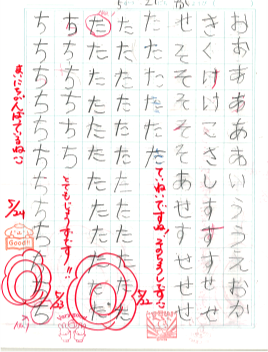 おおああああいううえおか
きくけけこさしすすすせせ
せそそそそそあせせすせす
たたたたたた
ていねいですね!
5/22
たたたたたたたたたたたた
たたたたたたたたたたたた
ちちちちちち
とてもじょうずです!!
5/23
ちちちちちちちちちちちち
まいにちがんばっているね
5/24
Good!!